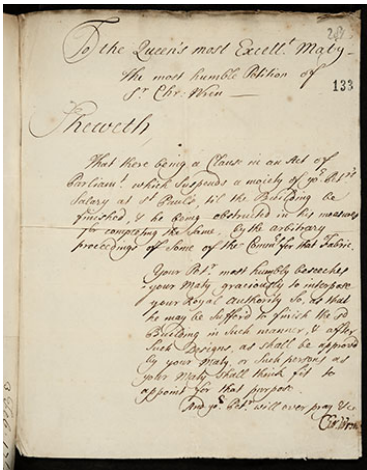 To the Queen's most Excellt. Maty.
The most humble Petition of
Sr. Chr. Wren
133
Sheweth
That there being a Clause in an Act of
Parliamt. which suspends a moiety of yor. Petrs
Salary at St. Pauls, til the Building be
finished, & he being obstructed in his measures
for completing the same, by the arbitrary
proceedings of some of the Commrs. for that Fabric.
Your Petr. most humbly beseeches
your Maty. graciously to interpose
your Royal Authority so, as that
he may be sufferd to finish the sd.
Building in such manner, & after
such Designs, as shall be approvd
by your Maty. or such persons as
your Maty. shall think fit to
appoint for that purpose.
And yor. Petr. will ever pray &c
Chr. Wren